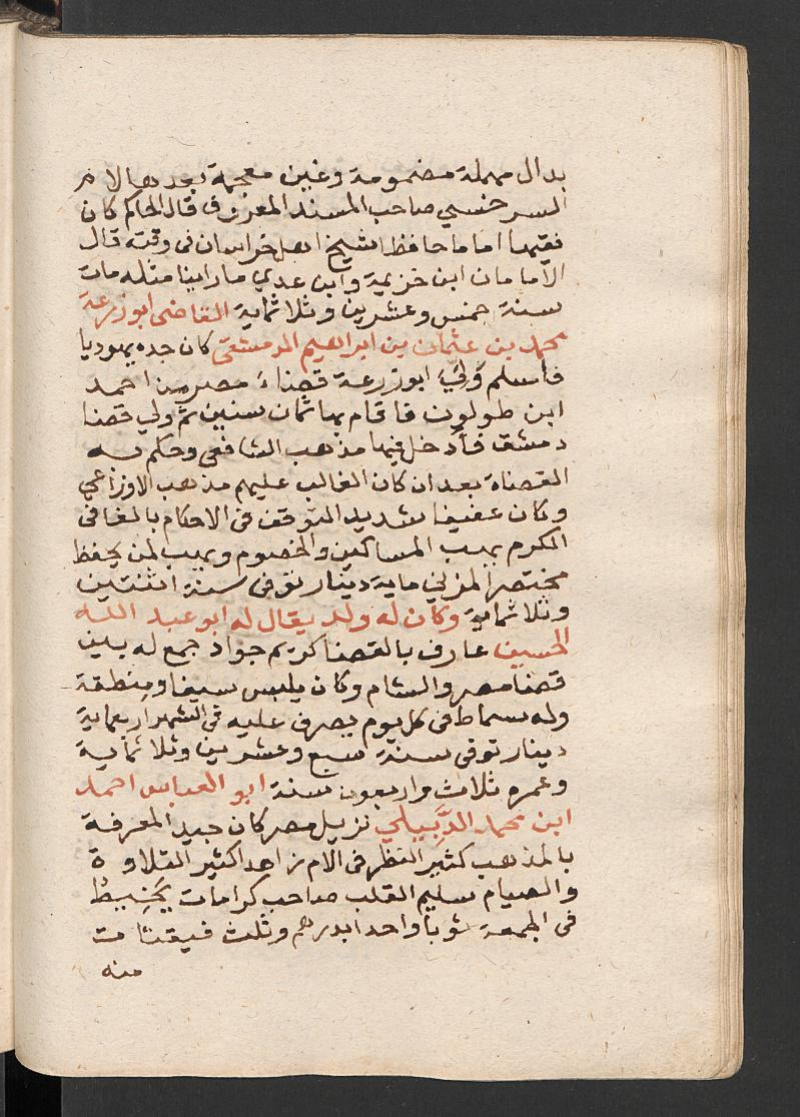 بدال مهملة مضمومة وغين معجمة بعدها لام
السرخسي صاحب المسند المعروف قال الحاكم كان
فقيها اماما حافظا شيخ اهل خراسان في وقته قال
الامامان ابن خزيمة وابن عدي ما راينا مثله مات
سنة خمس وعشرين وثلاثماية القاضى ابو زرعة
محمد بن عثمان بن ابراهيم الدمشقى كان جده يهوديا
فاسلم وَلِيَ ابو زرعة قضاء مصر من احمد
ابن طولون فاقام بها ثمان سنين ثم ولي قضا
دمشق فأدخل فيها مذهب الشافعى وحكم به
القضاة بعد ان كان الغالب عليهم مذهب الاوزاعي
وكان عفيفا شديد التوقف فى الاحكام بالغا فى
الكرم يهب المساكين والخصوم ويهب لمن يحفظ
مختصر المزني ماية دينار توفى سنة اثنتين
وثلاثماية وكان له ولد يقال له ابو عبد الله
الحسين عارف بالقضا كريم جواد جمع له بين
قضا مصر والشام وكان يلبس سيفا ومنطقة
وله سماط فى كل يوم يصرف عليه فى الشهر اربعماية
دينار توفى سنة سبع وعشرين وثلاثماية
وعمره ثلاث واربعون سنة ابو العباس احمد
ابن محمد الدَّبِيلي نزيل مصر كان جيد المعرفة
بالمذهب كثير النظر فى الام زاهدا كثير التلاوة
والصيام سليم القلب صاحب كرامات يَخِيطُ
فى الجمعة ثوبا واحدا بدرهم وثلث فيقتات
منه